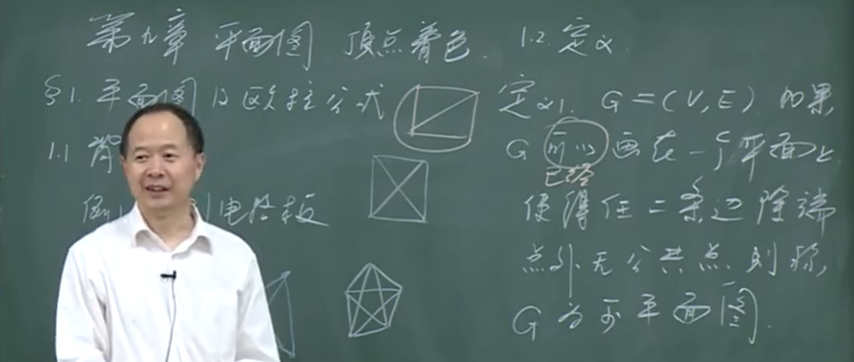 第九章 平面图 顶点着色. 1.2. 定义.
§1. 平面图及欧拉公式
1.1 背
例 电路板
定义1. G=(V,E) 如果
G 可以画在一个平面上
已经
使得任二条边除端
点外无公共点则称,
G为可平面图.